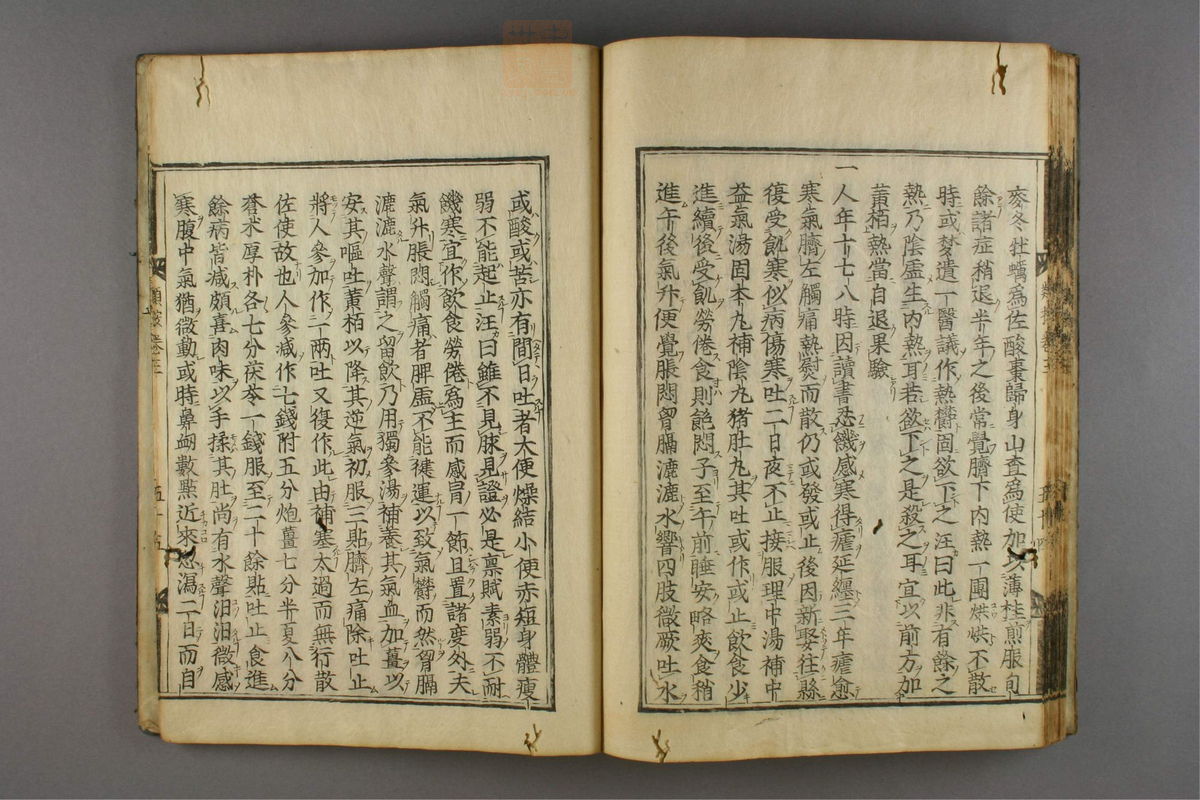 麥冬牡蠣爲佐酸棗歸身山査爲使加以薄桂煎服旬
餘諸症稍退半年之後常覺臍下内熱一團烘烘不散
時或夢遺一醫議作熱欝固欲下之汪曰此非有餘之
熱乃陰虛生内熱耳若欲下之是殺之耳宜以前方加
黃栢熱當自退果驗
一人年十七八時因讀書忍饑感寒得瘧延纏三年瘧愈
寒氣臍左觸痛熱熨而散仍或發或止後因新娶往縣
復受飢寒似病傷寒吐二日夜不止接服理中湯補中
益氣湯固本丸補陰丸猪肚丸其吐或作或止飲食少
進續後受飢勞倦食則飽悶子至午前睡安略爽食稍
進午後氣升便覺脹悶胷膈漉漉水響四肢微厥吐水
或酸或苦亦有間日吐者大便燥結小便赤短身體瘦
弱不能起止汪曰雖不見脉見證必是禀賦素弱不耐
饑寒宜作飲食勞倦爲主而感冒一節且置諸度外夫
氣升脹悶觸痛者脾虛不能健運以致氣欝而然胷膈
漉漉水聲謂之留飲乃用獨參湯補養其氣血加薑以
安其嘔吐黃栢以降其逆氣初服三貼臍左痛除吐止
將人參加作一兩吐又復作此由補塞太過而無行散
佐使故也人參減作七錢附五分炮薑七分半夏八分
香朮厚朴各七分茯苓一錢服至二十餘貼吐止食進
餘病皆減頗喜肉味以手揉其肚尚有水聲汨汨微感
寒腹中氣猶微動或時鼻衂數點近來忽瀉二日而自
類案卷三
五十